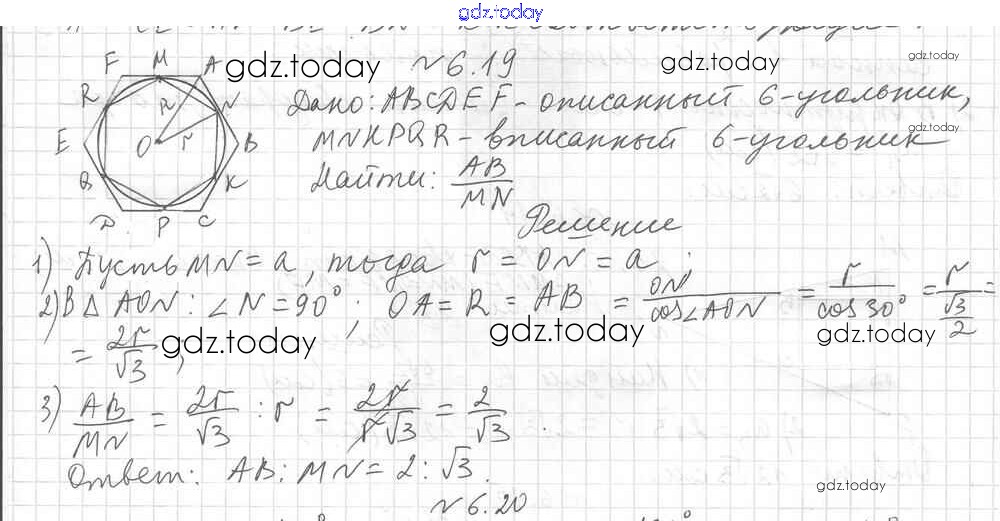 gdz.today
F M A gdz.today №6.19 gdz.today
R R N Дано: ABCDEF - описанный 6-угольник, gdz.today
E O r B MNKPQR - вписанный 6-угольник
Q K Найти: AB/MN gdz.today
D P C Решение
1) Пусть MN = a, тогда r = ON = a.
2) В △ AON: ∠N = 90°; OA = R = AB = ON/cos∠AON = r/cos 30° = r/(√3/2) =
= 2r/√3; gdz.today gdz.today gdz.today
3) AB/MN = 2r/√3 : r = 2r/r√3 = 2/√3.
Ответ: AB : MN = 2 : √3. gdz.today
№6.20